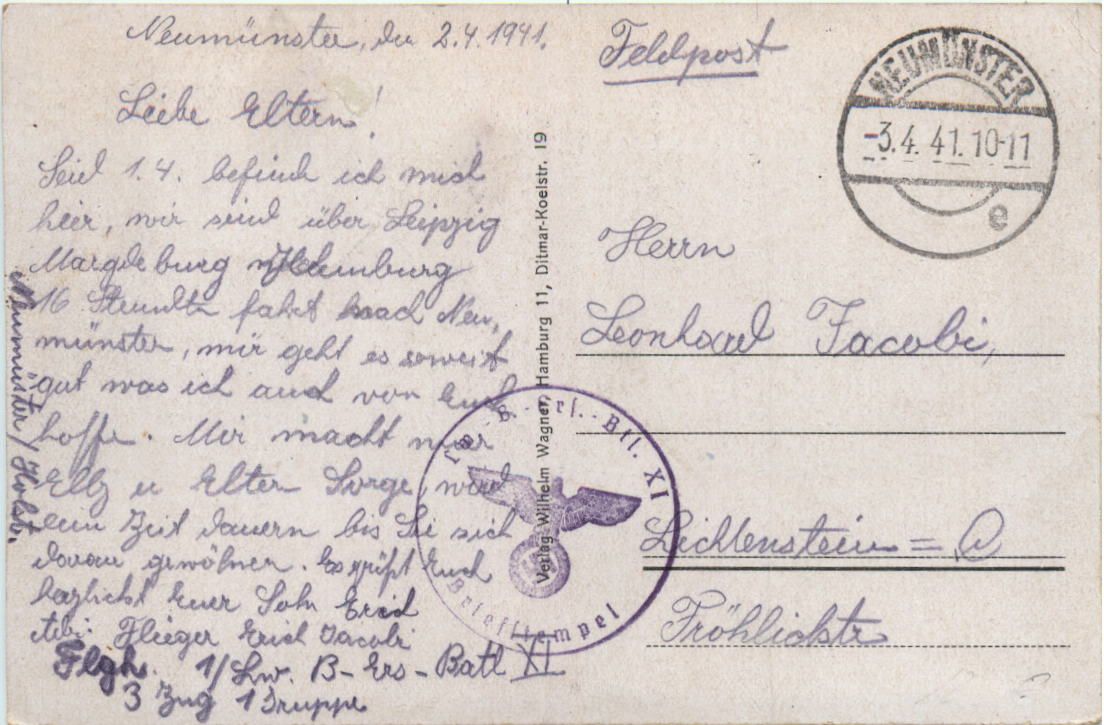 Neumünster, den 2.4.1941.
Liebe Eltern!
Seid 1.4. befind ich mich
hier, wir sind über Leipzig
Margdeburg Hamburg
16 Stundn fahrt nach Neu,
münster, mir geht es soweit
gut was ich auch von Euch
hoffe. Mir macht nur
Elly u Elter Sorge, wird
ein Zeit dauern bis Sie sich
daran gewöhnen. Es grüßt Euch
herzlichst Euer Sohn Erich
Abs: Flieger Erich Jacobi
Flgh. 1/Lw. B-Ers-Batl XI
3 Zug 1 Gruppe
Neumünster/Holst.
Verlag Wilhelm Wagner, Hamburg 11, Ditmar-Koelstr. 19
Feldpost
NEUMÜNSTER
-3.4.41.10-11
e
Herrn
Leonhard Jacobi,
Lichtenstein = C
Fröhlichstr
Lw.-B.-Ers.-Btl. XI
Briefstempel